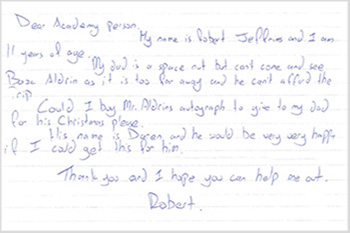 Dear Academy person,
My name is Robert Jeffries and I am
11 years of age.
My dad is a space nut but cant come and see
Buzz Aldrin as it is too far away and he cant afford the
trip.
Could I buy Mr. Aldrins autograph to give to my dad
for his Christmas please.
His name is Daren, and he would be very very happy
if I could get this for him.
Thank you and I hope you can help me out.
Robert.